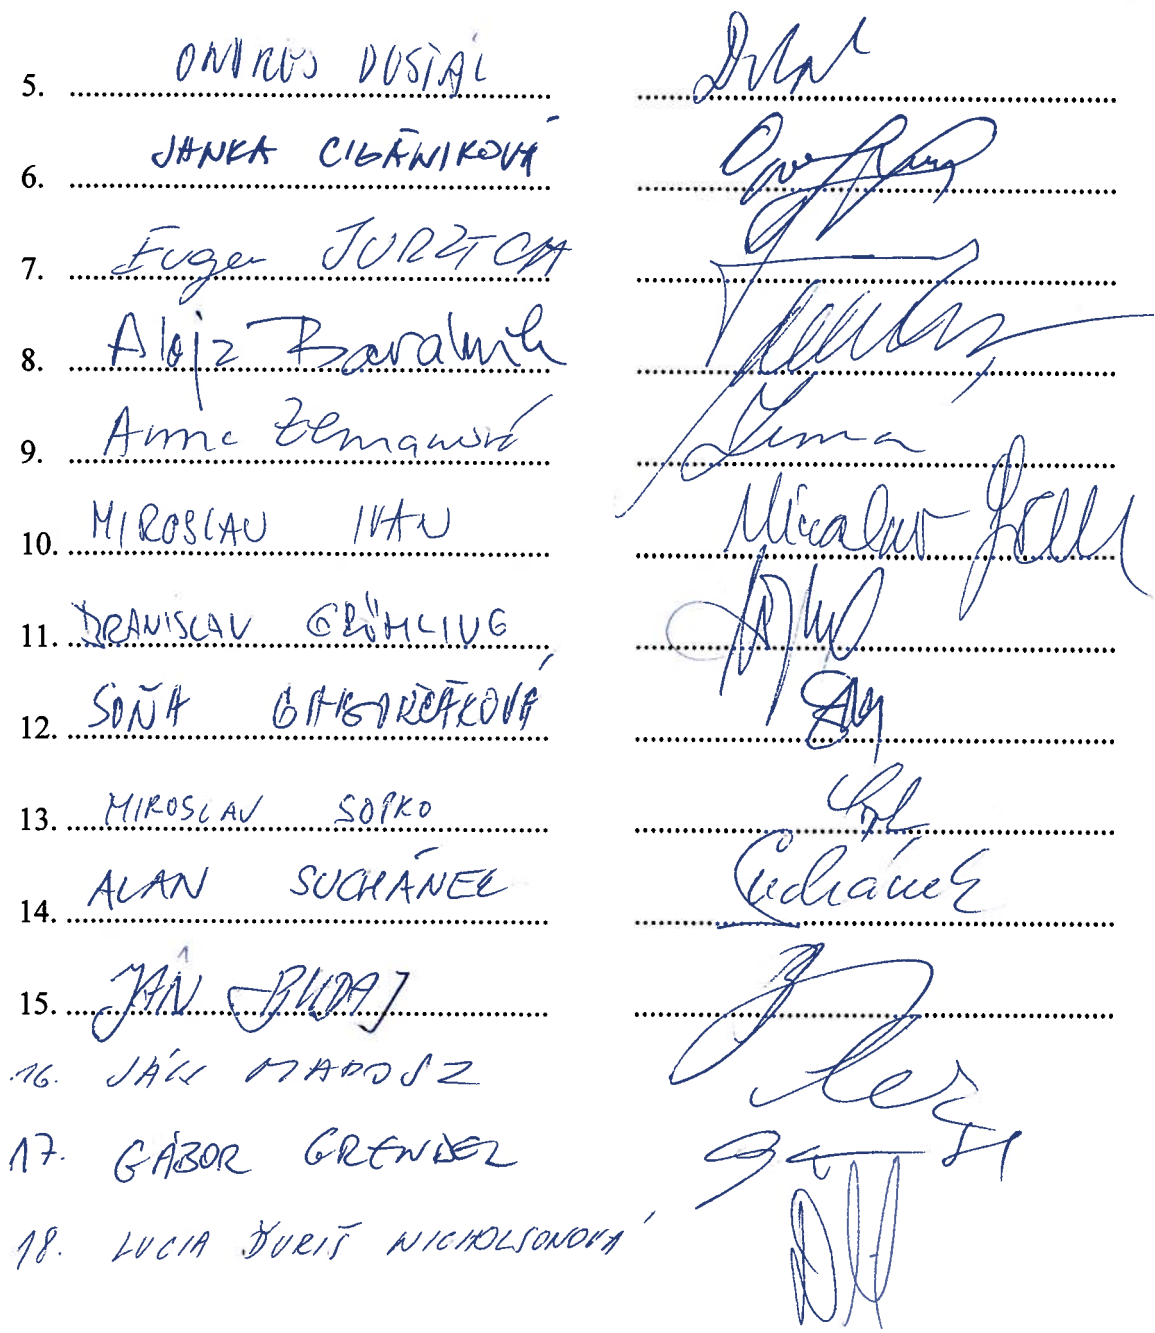 5. ONDREJ DOSTÁL
6. JANKA CIGÁNIKOVÁ
7. Eugen JURZYCA
8. Alojz Baránik
9. Anna Zemanová
10. MIROSLAV IVAN Miroslav Ivan
11. BRANISLAV GRÖHLING
12. SOŇA GABORČÁKOVÁ
13. MIROSLAV SOPKO
14. ALAN SUCHÁNEK Suchánek
15. JÁN BUDAJ
16. JÁN MAROSZ
17. GÁBOR GRENDEL
18. LUCIA ĎURIŠ NICHOLSONOVÁ